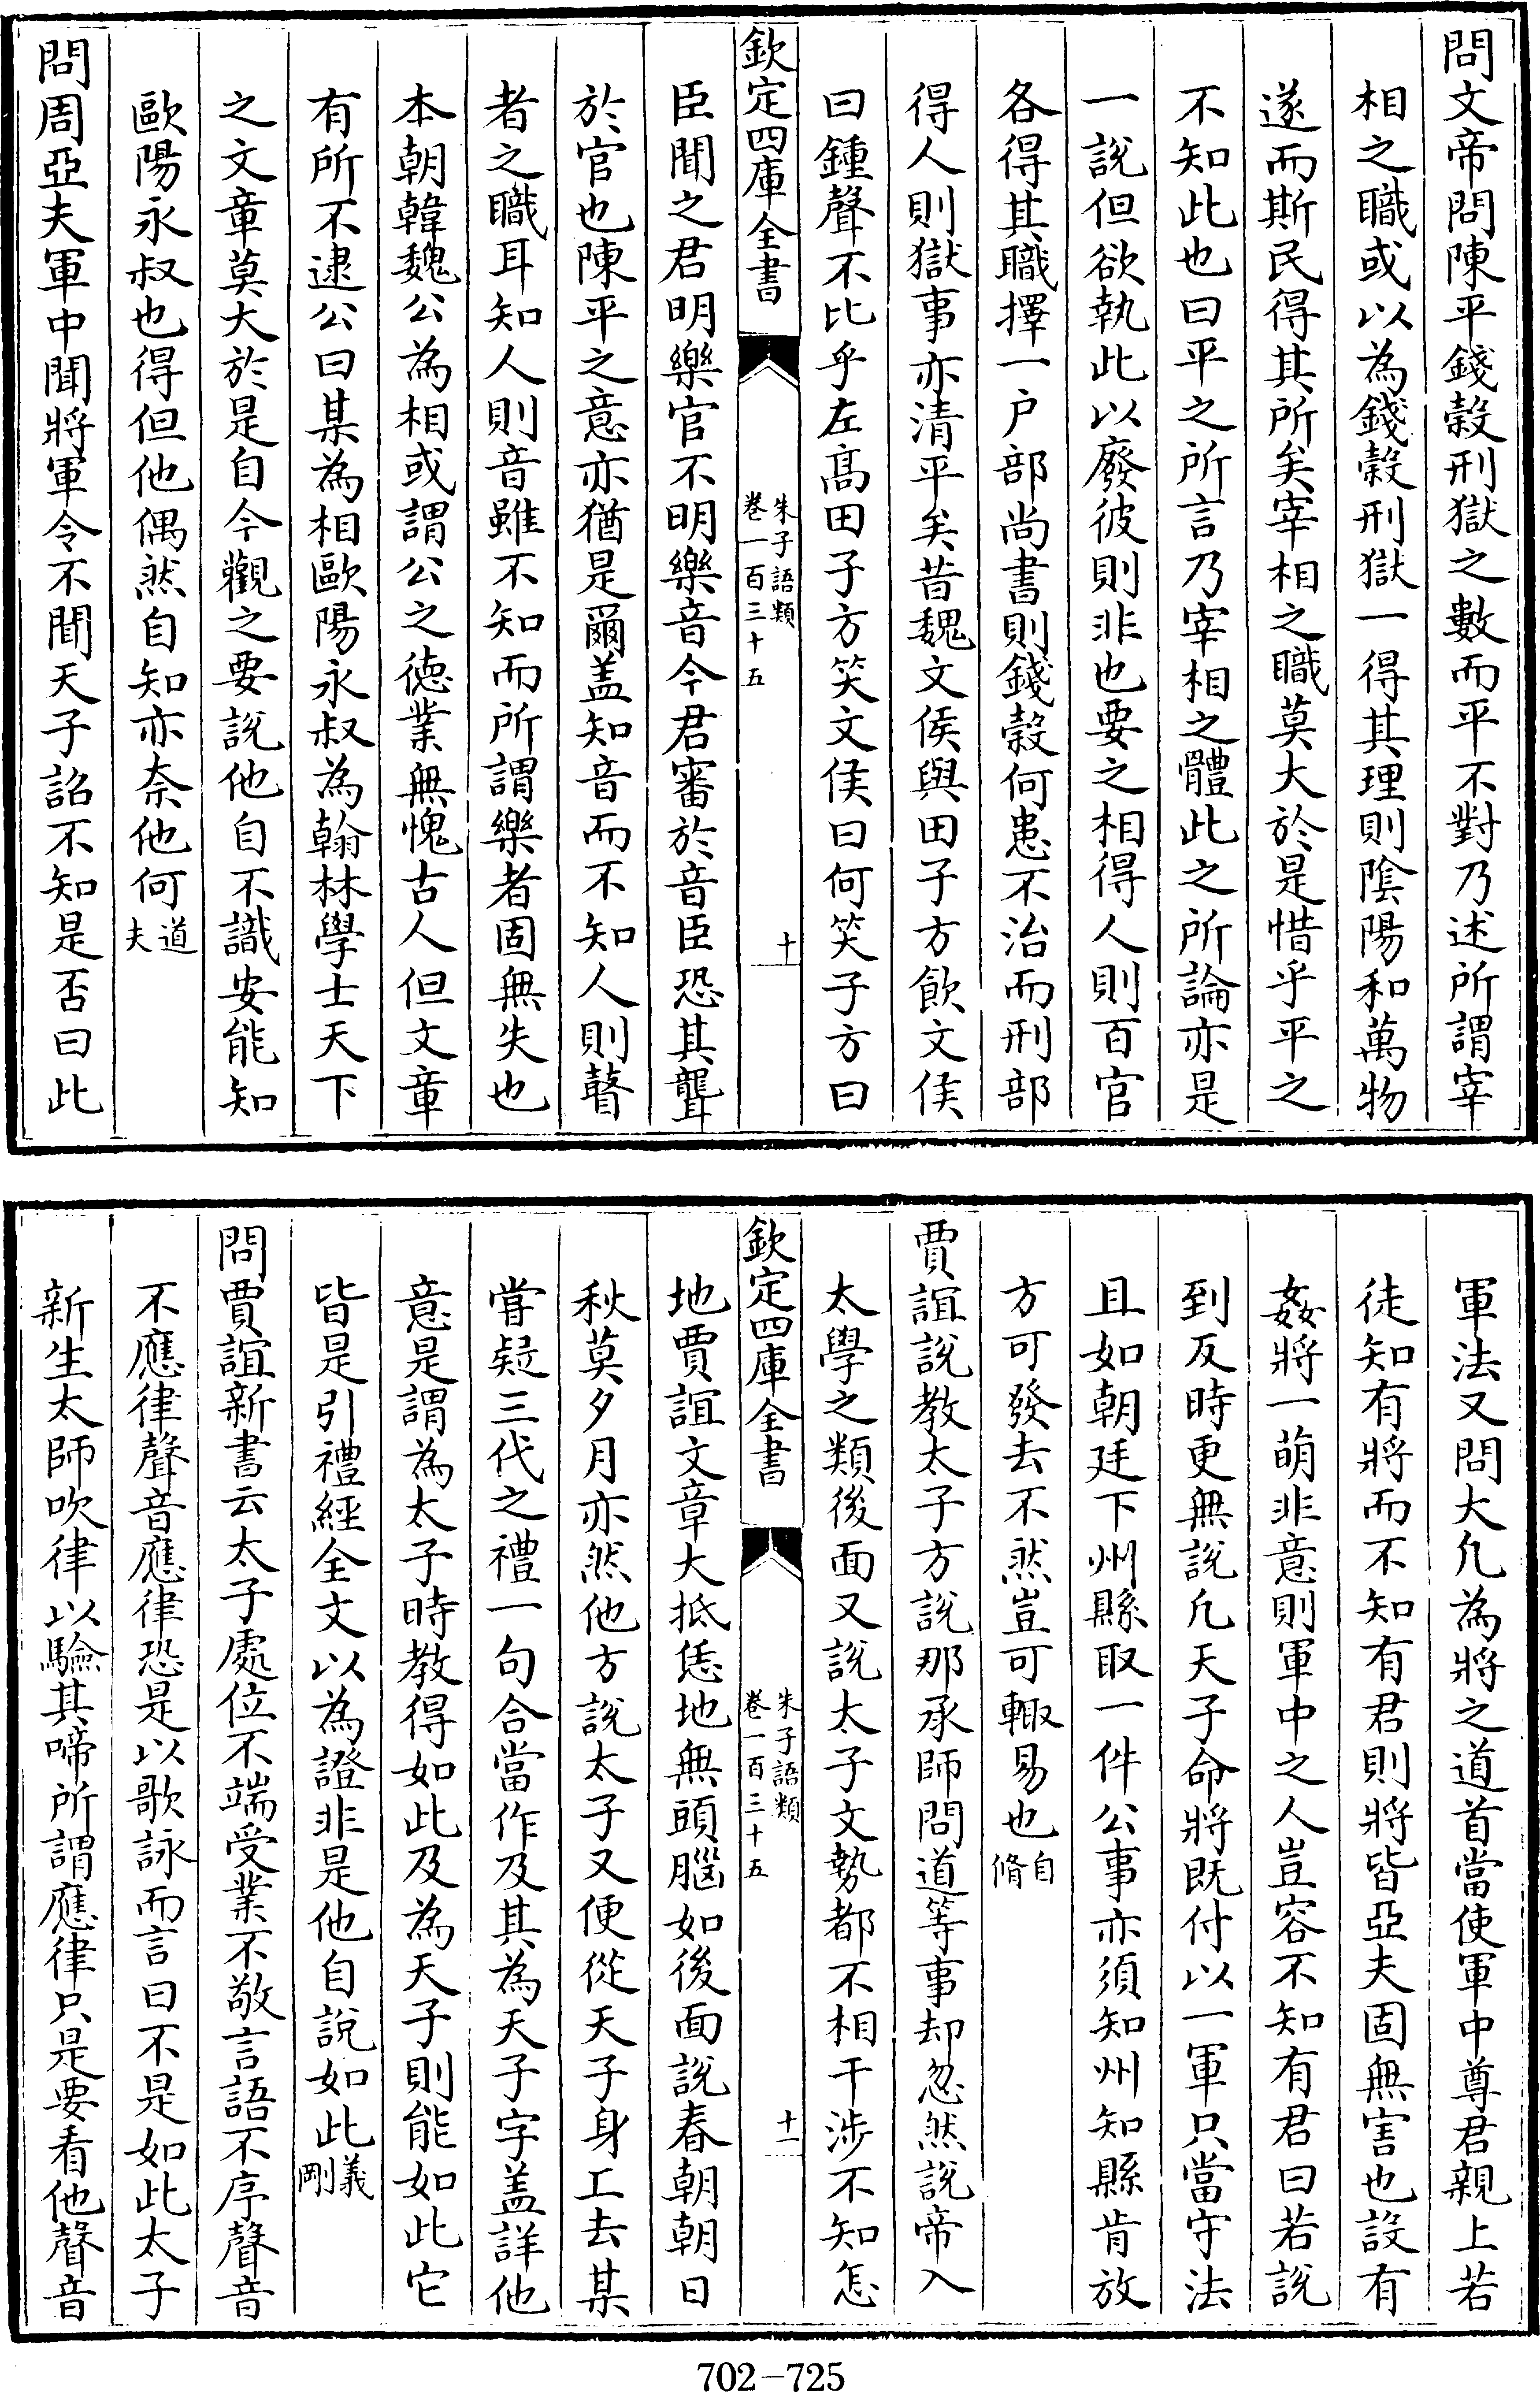 問文帝問陳平錢榖刑獄之數而平不對乃述所謂宰
相之職或以為錢榖刑獄一得其理則陰陽和萬物
遂而斯民得其所矣宰相之職莫大於是惜乎平之
不知此也曰平之所言乃宰相之體此之所論亦是
一說但欲執此以廢彼則非也要之相得人則百官
各得其職擇一户部尚書則錢榖何患不治而刑部
得人則獄事亦清平矣昔魏文侯與田子方飲文侯
曰鍾聲不比乎左髙田子方笑文侯曰何笑子方曰
欽定四庫全書
朱子語類
卷一百三十五
十
臣聞之君明樂官不明樂音今君審於音臣恐其聾
於官也陳平之意亦猶是爾盖知音而不知人則瞽
者之職耳知人則音雖不知而所謂樂者固無失也
本朝韓魏公為相或謂公之徳業無愧古人但文章
有所不逮公曰某為相歐陽永叔為翰林學士天下
之文章莫大於是自今觀之要說他自不識安能知
歐陽永叔也得但他偶然自知亦奈他何道
夫
問周亞夫軍中聞將軍令不聞天子詔不知是否曰此
軍法又問大凢為將之道首當使軍中尊君親上若
徒知有將而不知有君則將皆亞夫固無害也設有
姦將一萌非意則軍中之人豈容不知有君曰若説
到反時更無說凢天子命將既付以一軍只當守法
且如朝廷下州縣取一件公事亦須知州知縣肯放
方可發去不然豈可輙易也自
脩
賈誼說教太子方說那承師問道等事却忽然說帝入
太學之類後面又說太子文勢都不相干涉不知怎
欽定四庫全書
朱子語類
卷一百三十五
十一
地賈誼文章大抵恁地無頭腦如後面說春朝朝日
秋莫夕月亦然他方說太子又便從天子身上去某
甞疑三代之禮一句合當作及其為天子字盖詳他
意是謂為太子時教得如此及為天子則能如此它
皆是引禮經全文以為證非是他自說如此義
剛
問賈誼新書云太子處位不端受業不敬言語不序聲音
不應律聲音應律恐是以歌詠而言曰不是如此太子
新生太師吹律以驗其啼所謂應律只是要看他聲音
702-725